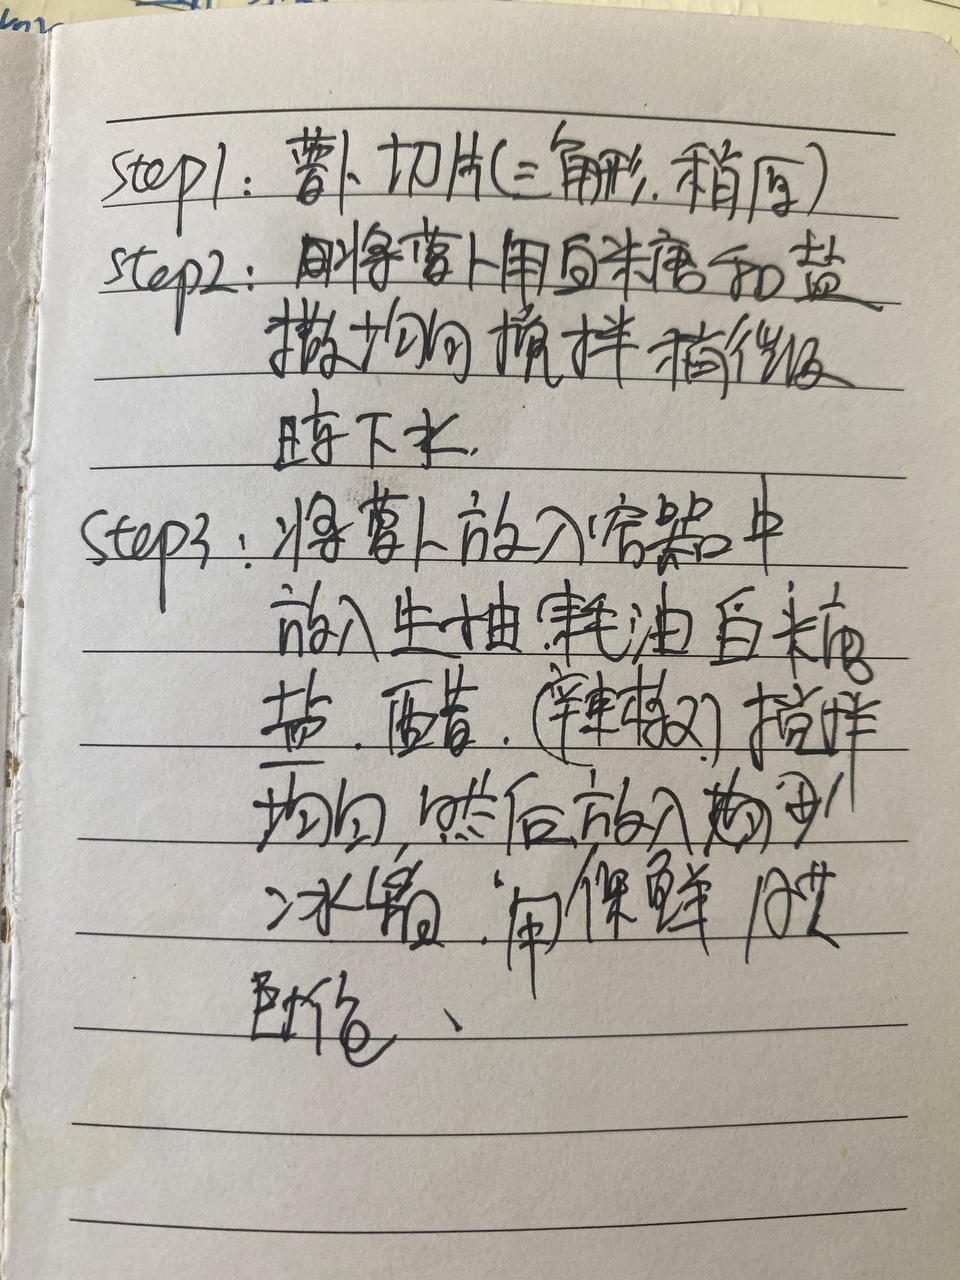 step1: 萝卜切片(三角形.稍厚)
step2: 将萝卜用白米糖和盐
撒均匀搅拌稍微
下水.
step3: 将萝卜放入容器中
放入生抽 耗油 白米糖
盐.醋.(辣椒) 搅拌
均匀,然后放入
冰箱.用保鲜膜